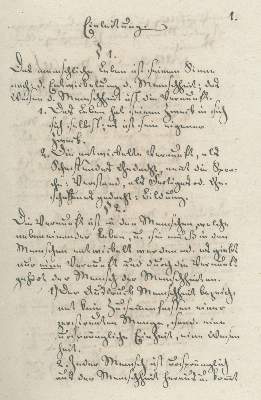 1.
Einleitung.
§ 1.
Das menschliche Leben ist seinem Sinne
nach: d. Entwickelung d. Menschheit; das
Wesen d. Menschheit ist die Vernunft.
1. Das Leben hat seinen Zweck in sich
sich selbst, es ist sein eigener
Zweck.
2. Die entwickelte Vernunft, als
gedacht, ist die
: Verstand, als
gedacht: Bildung.
§ 2.
Die Vernunft ist in den Menschen welche
nebeneinander leben zu, sie muß in den
Menschen entwickelt werden u. es giebt
nur eine Vernunft und durch die Vernunft
gehört der Mensch der Menschheit an.
1) Der Ausdruck Menschheit bezeich-
net kein Zusammenfassen einer
Menge, sond. eine
ursprüngliche Einheit, eine Wesen
heit.
2. Jeder Mensch ist ursprünglich
aus der Menschheit heraus u. kommt